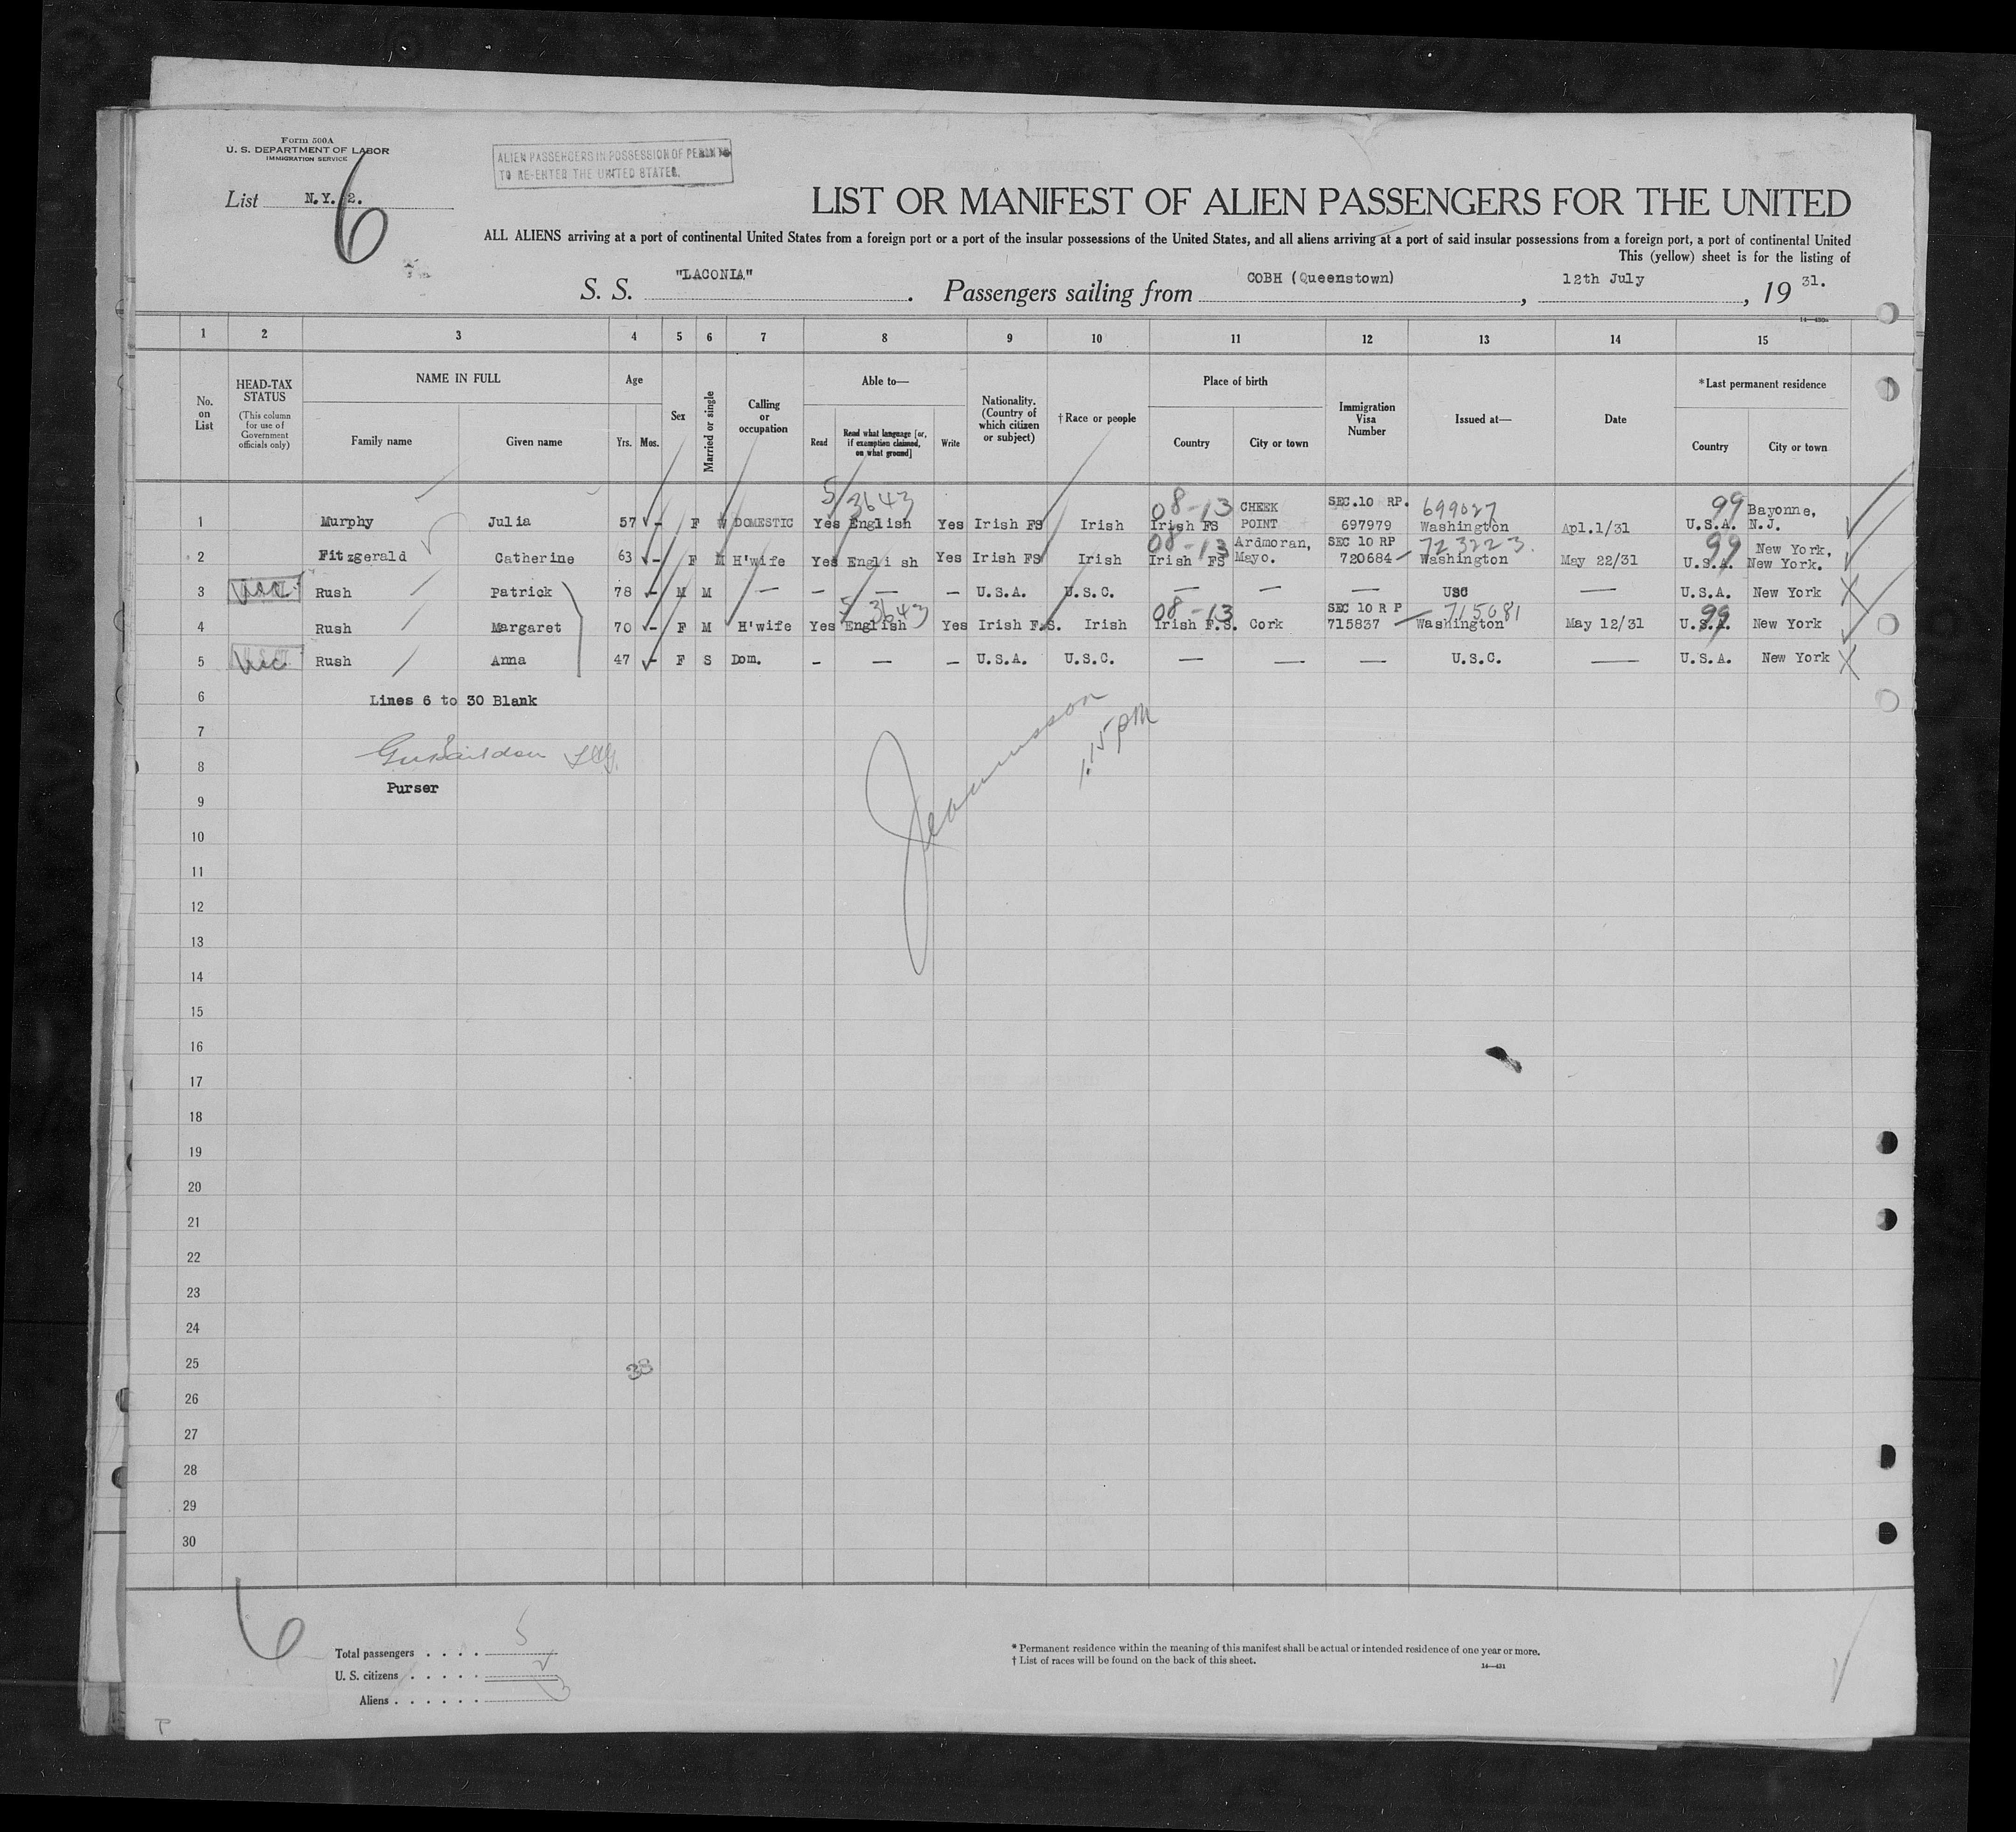 Form 500A
U. S. DEPARTMENT OF LABOR
IMMIGRATION SERVICE
ALIEN PASSENGERS IN POSSESSION OF PERMITS
TO RE-ENTER THE UNITED STATES.
List N.Y. 2.
6
LIST OR MANIFEST OF ALIEN PASSENGERS FOR THE UNITED
ALL ALIENS arriving at a port of continental United States from a foreign port or a port of the insular possessions of the United States, and all aliens arriving at a port of said insular possessions from a foreign port, a port of continental United
This (yellow) sheet is for the listing of
S. S. "LACONIA" . Passengers sailing from COBH (Queenstown) , 12th July , 19 31.
1 2 3 4 5 6 7 8 9 10 11 12 13 14 15
No. on List
HEAD-TAX STATUS
(This column for use of Government officials only)
NAME IN FULL
Family name Given name
Age
Yrs. Mos.
Sex
Married or single
Calling or occupation
Able to—
Read Read what language [or, if exemption claimed, on what ground] Write
Nationality. (Country of which citizen or subject)
† Race or people
Place of birth
Country City or town
Immigration Visa Number
Issued at—
Date
* Last permanent residence
Country City or town
5 3643 08-13 CHEEK SEC.10 RP. 699027 99 Bayonne,
1 Murphy Julia 57 F W DOMESTIC Yes English Yes Irish FS Irish Irish FS POINT 697979 Washington Apl.1/31 U.S.A. N.J.
08-13 Ardmoran, SEC 10 RP 723223. 99 New York,
2 Fitzgerald Catherine 63 F M H'wife Yes Engli sh Yes Irish FS Irish Irish FS Mayo. 720684 Washington May 22/31 U.S.A. New York.
3 Rush Patrick 78 M M — — — — U.S.A. U.S.C. — — — USC — U.S.A. New York
5 3643 08-13 SEC 10 R P 715081 99
4 Rush Margaret 70 F M H'wife Yes English Yes Irish F.S. Irish Irish F.S. Cork 715837 Washington May 12/31 U.S.A. New York
5 Rush Anna 47 F S Dom. - — — U.S.A. U.S.C. — — — U.S.C. — U.S.A. New York
6 Lines 6 to 30 Blank
1.15 PM
7
8
Purser
9
10
11
12
13
14
15
16
17
18
19
20
21
22
23
24
25
38
26
27
28
29
30
6
Total passengers . . . . 5
U. S. citizens . . . . . 2
Aliens . . . . . . 3
* Permanent residence within the meaning of this manifest shall be actual or intended residence of one year or more.
† List of races will be found on the back of this sheet.
14—431